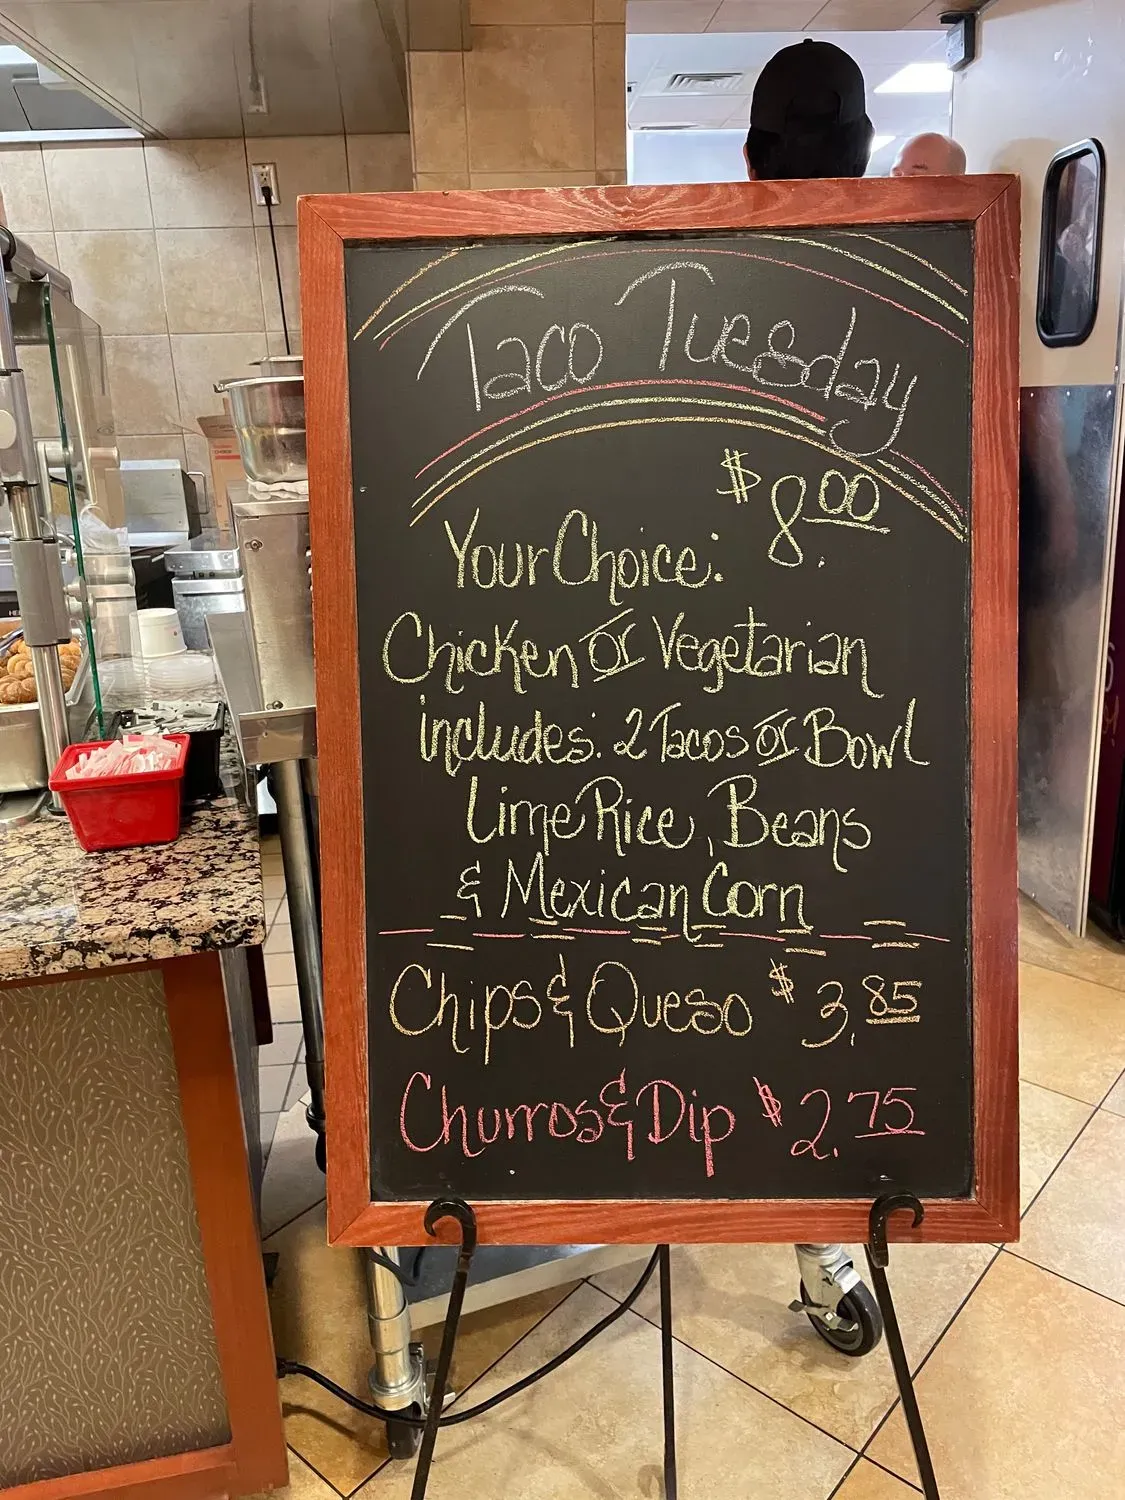 Taco Tuesday
$8.00
Your Choice:
Chicken or Vegetarian
includes: 2 Tacos or Bowl
Lime Rice, Beans
& Mexican Corn
Chips & Queso $3.85
Churros & Dip $2.75